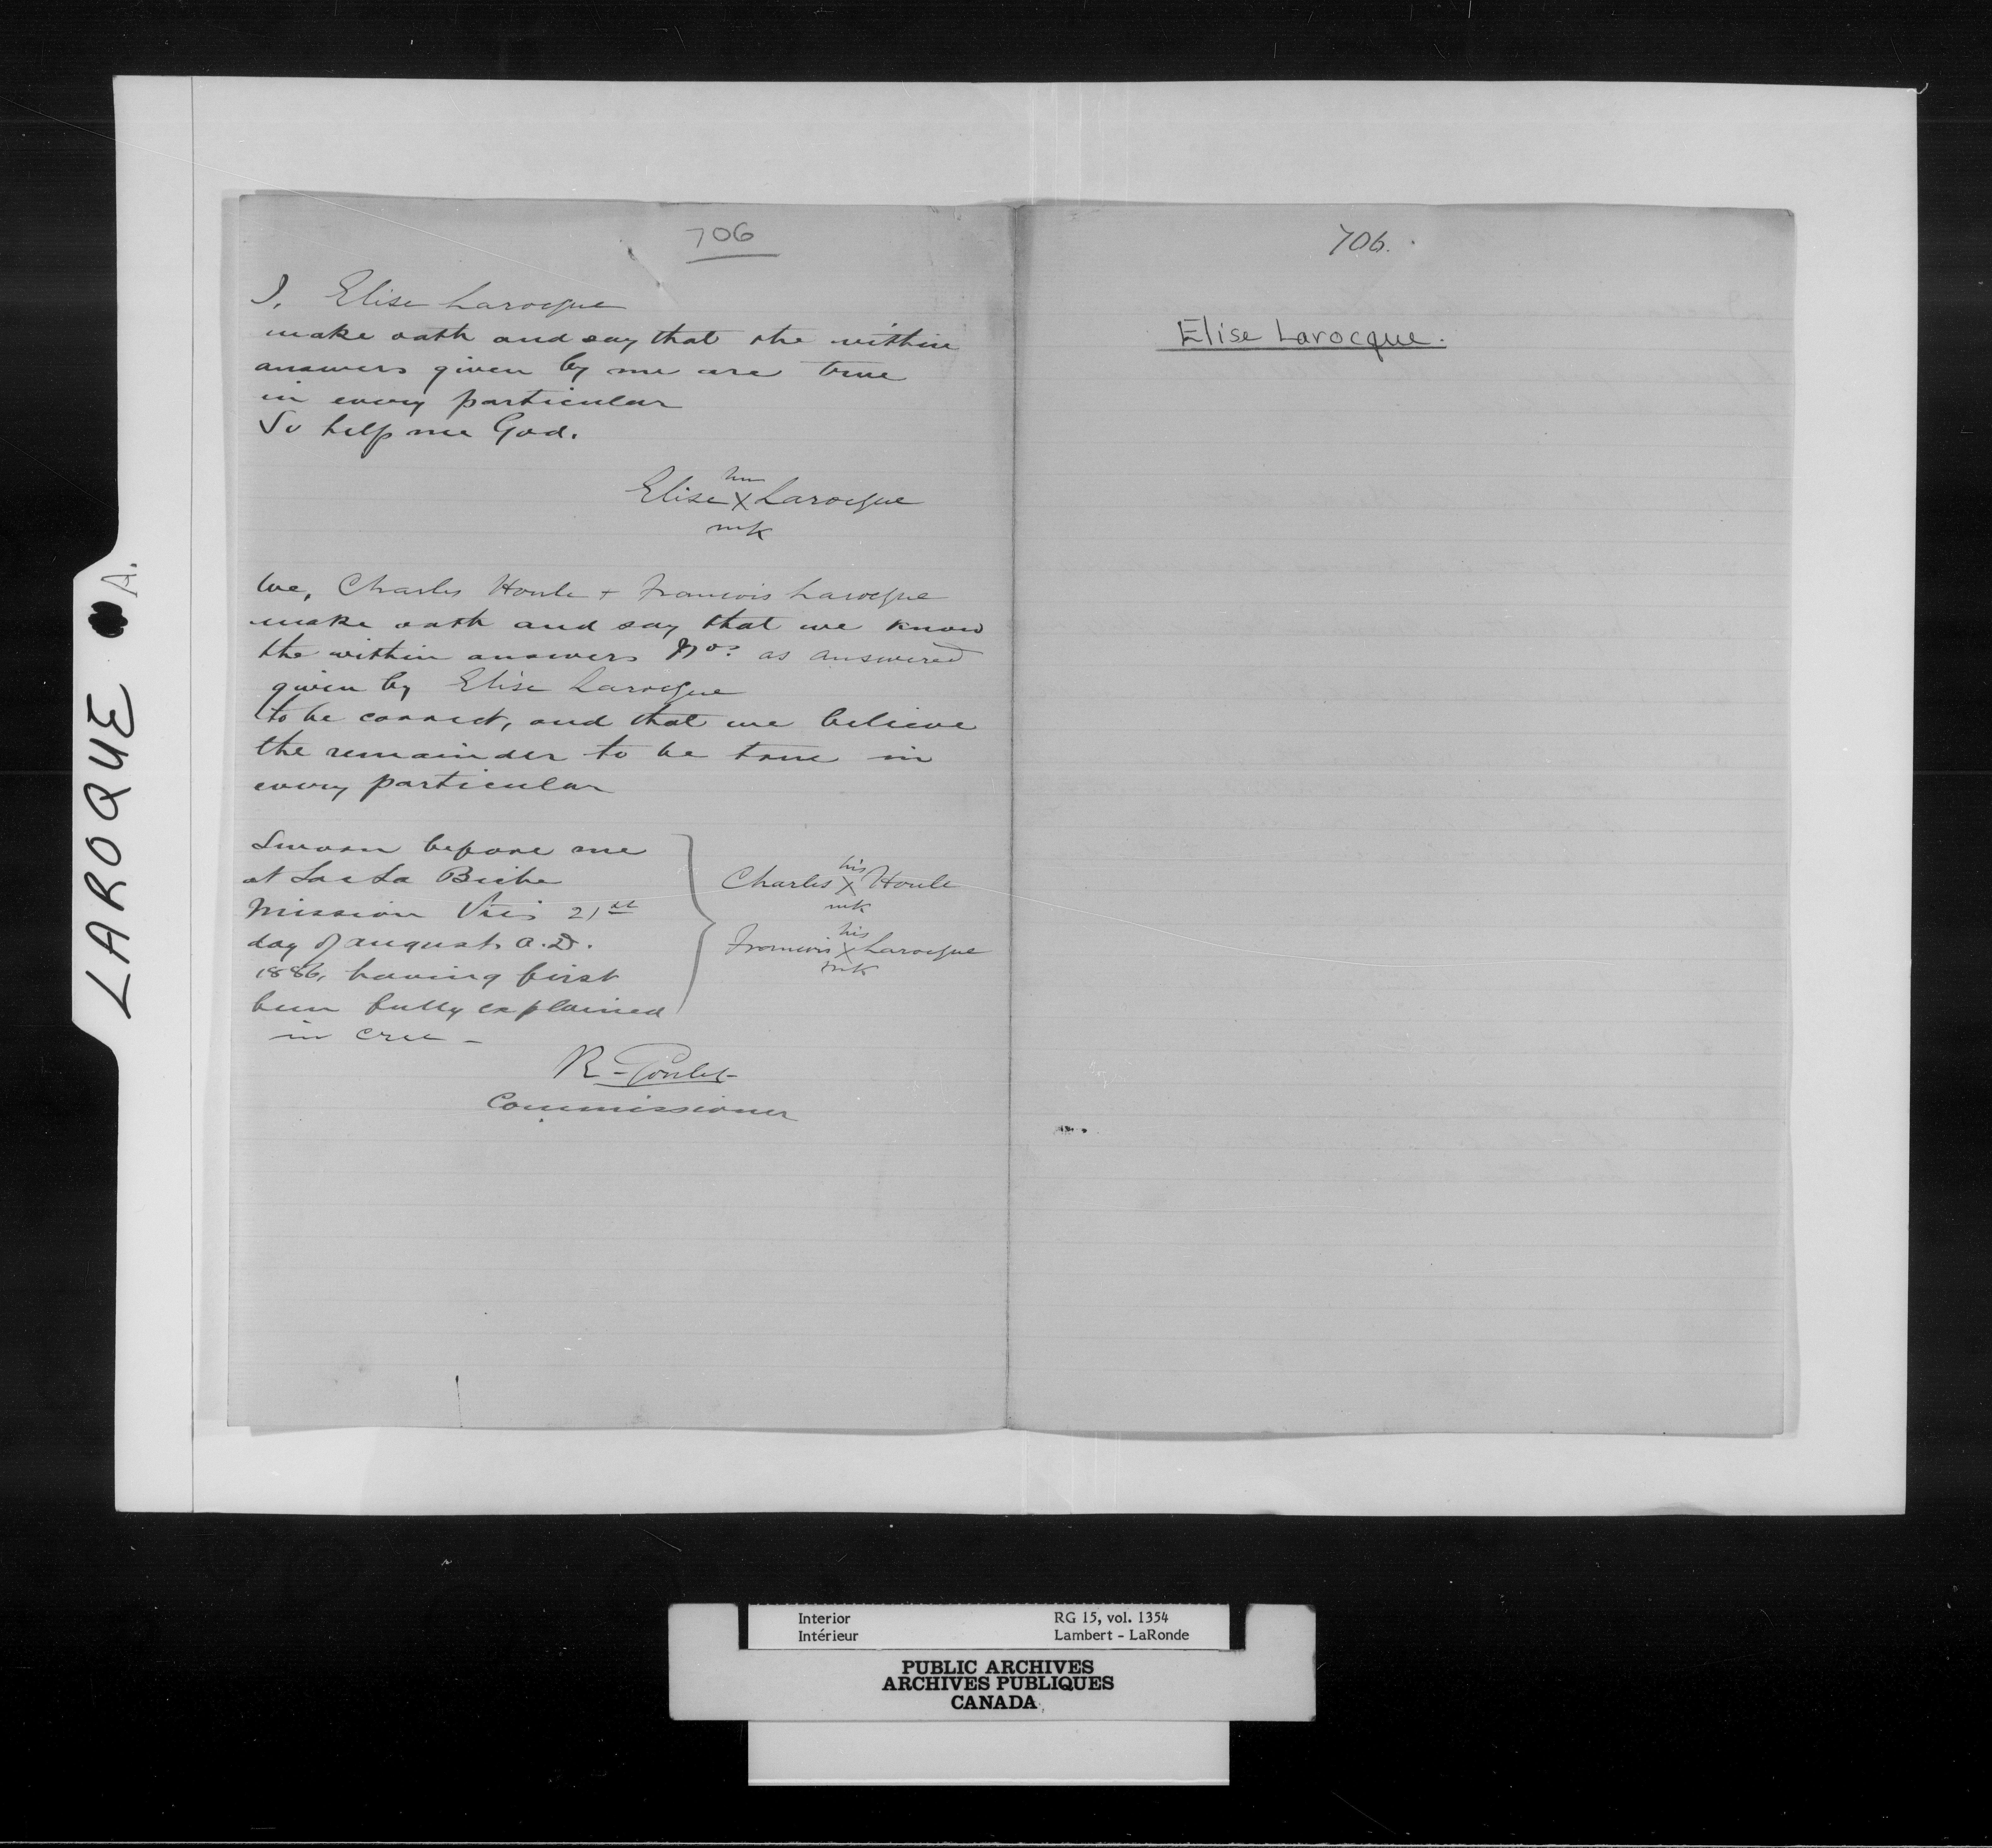 LAROQUE A.
706
I, Elise Larocque
make oath and say that the within
answers given by me are true
in every particular
So help me God.
her
Elise X Larocque
mk
We, Charles Houle + Francois Larocque
make oath and say that we know
the within answers Nos as answered
given by Elise Larocque
to be correct, and that we believe
the remainder to be true in
every particular
Sworn before me
at Lac La Biche
Mission this 21st
day of august A.D.
1886, having first
been fully explained
in cree -
his
Charles X Houle
mk
his
Francois X Larocque
mk
R - Goulet
Commissioner
706.
Elise Larocque.
Interior RG 15, vol. 1354
Intérieur Lambert - LaRonde
PUBLIC ARCHIVES
ARCHIVES PUBLIQUES
CANADA